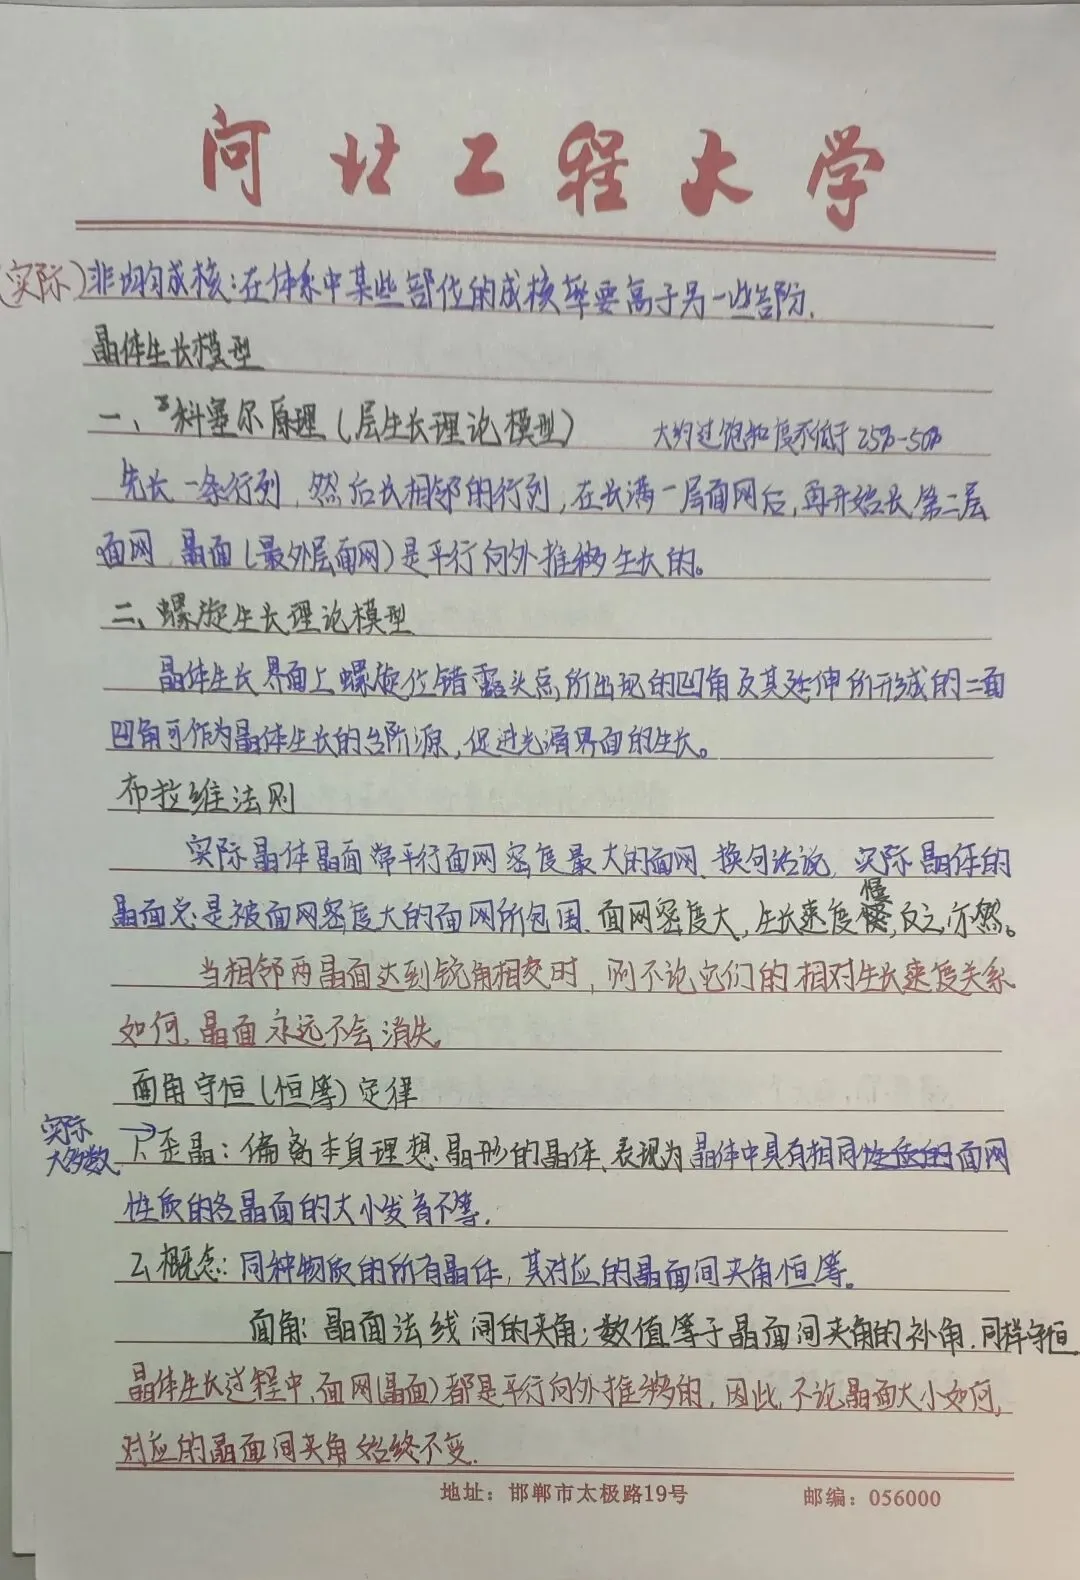 河北工程大学
(实际)非均匀成核:在体系中某些部位的成核率要高于另一些部分.
晶体生长模型
一、科塞尔原理(层生长理论模型) 大约过饱和度不低于25%-50%
先长一条行列,然后长相邻的行列,在长满一层面网后,再开始长第二层
面网,晶面(最外层面网)是平行向外推移生长的。
二、螺旋生长理论模型
晶体生长界面上螺旋位错露头点所出现的凹角及其延伸所形成的二面
凹角可作为晶体生长的台阶源,促进光滑界面的生长。
布拉维法则
实际晶体晶面常平行面网密度最大的面网、换句话说,实际晶体的
晶面总是被面网密度大的面网所包围、面网密度大,生长速度慢,反之,亦然。
当相邻两晶面达到锐角相交时,则不论它们的相对生长速度关系
如何,晶面永远不会消失。
面角守恒(恒等)定律
实际大多数 1、歪晶:偏离本身理想晶形的晶体、表现为晶体中具有相同性质的面网
性质的各晶面的大小发育不等.
2、概念:同种物质的所有晶体,其对应的晶面间夹角恒等。
面角:晶面法线间的夹角;数值等于晶面间夹角的补角.同样守恒
晶体生长过程中,面网(晶面)都是平行向外推移的,因此,不论晶面大小如何,
对应的晶面间夹角始终不变.
地址:邯郸市太极路19号 邮编:056000